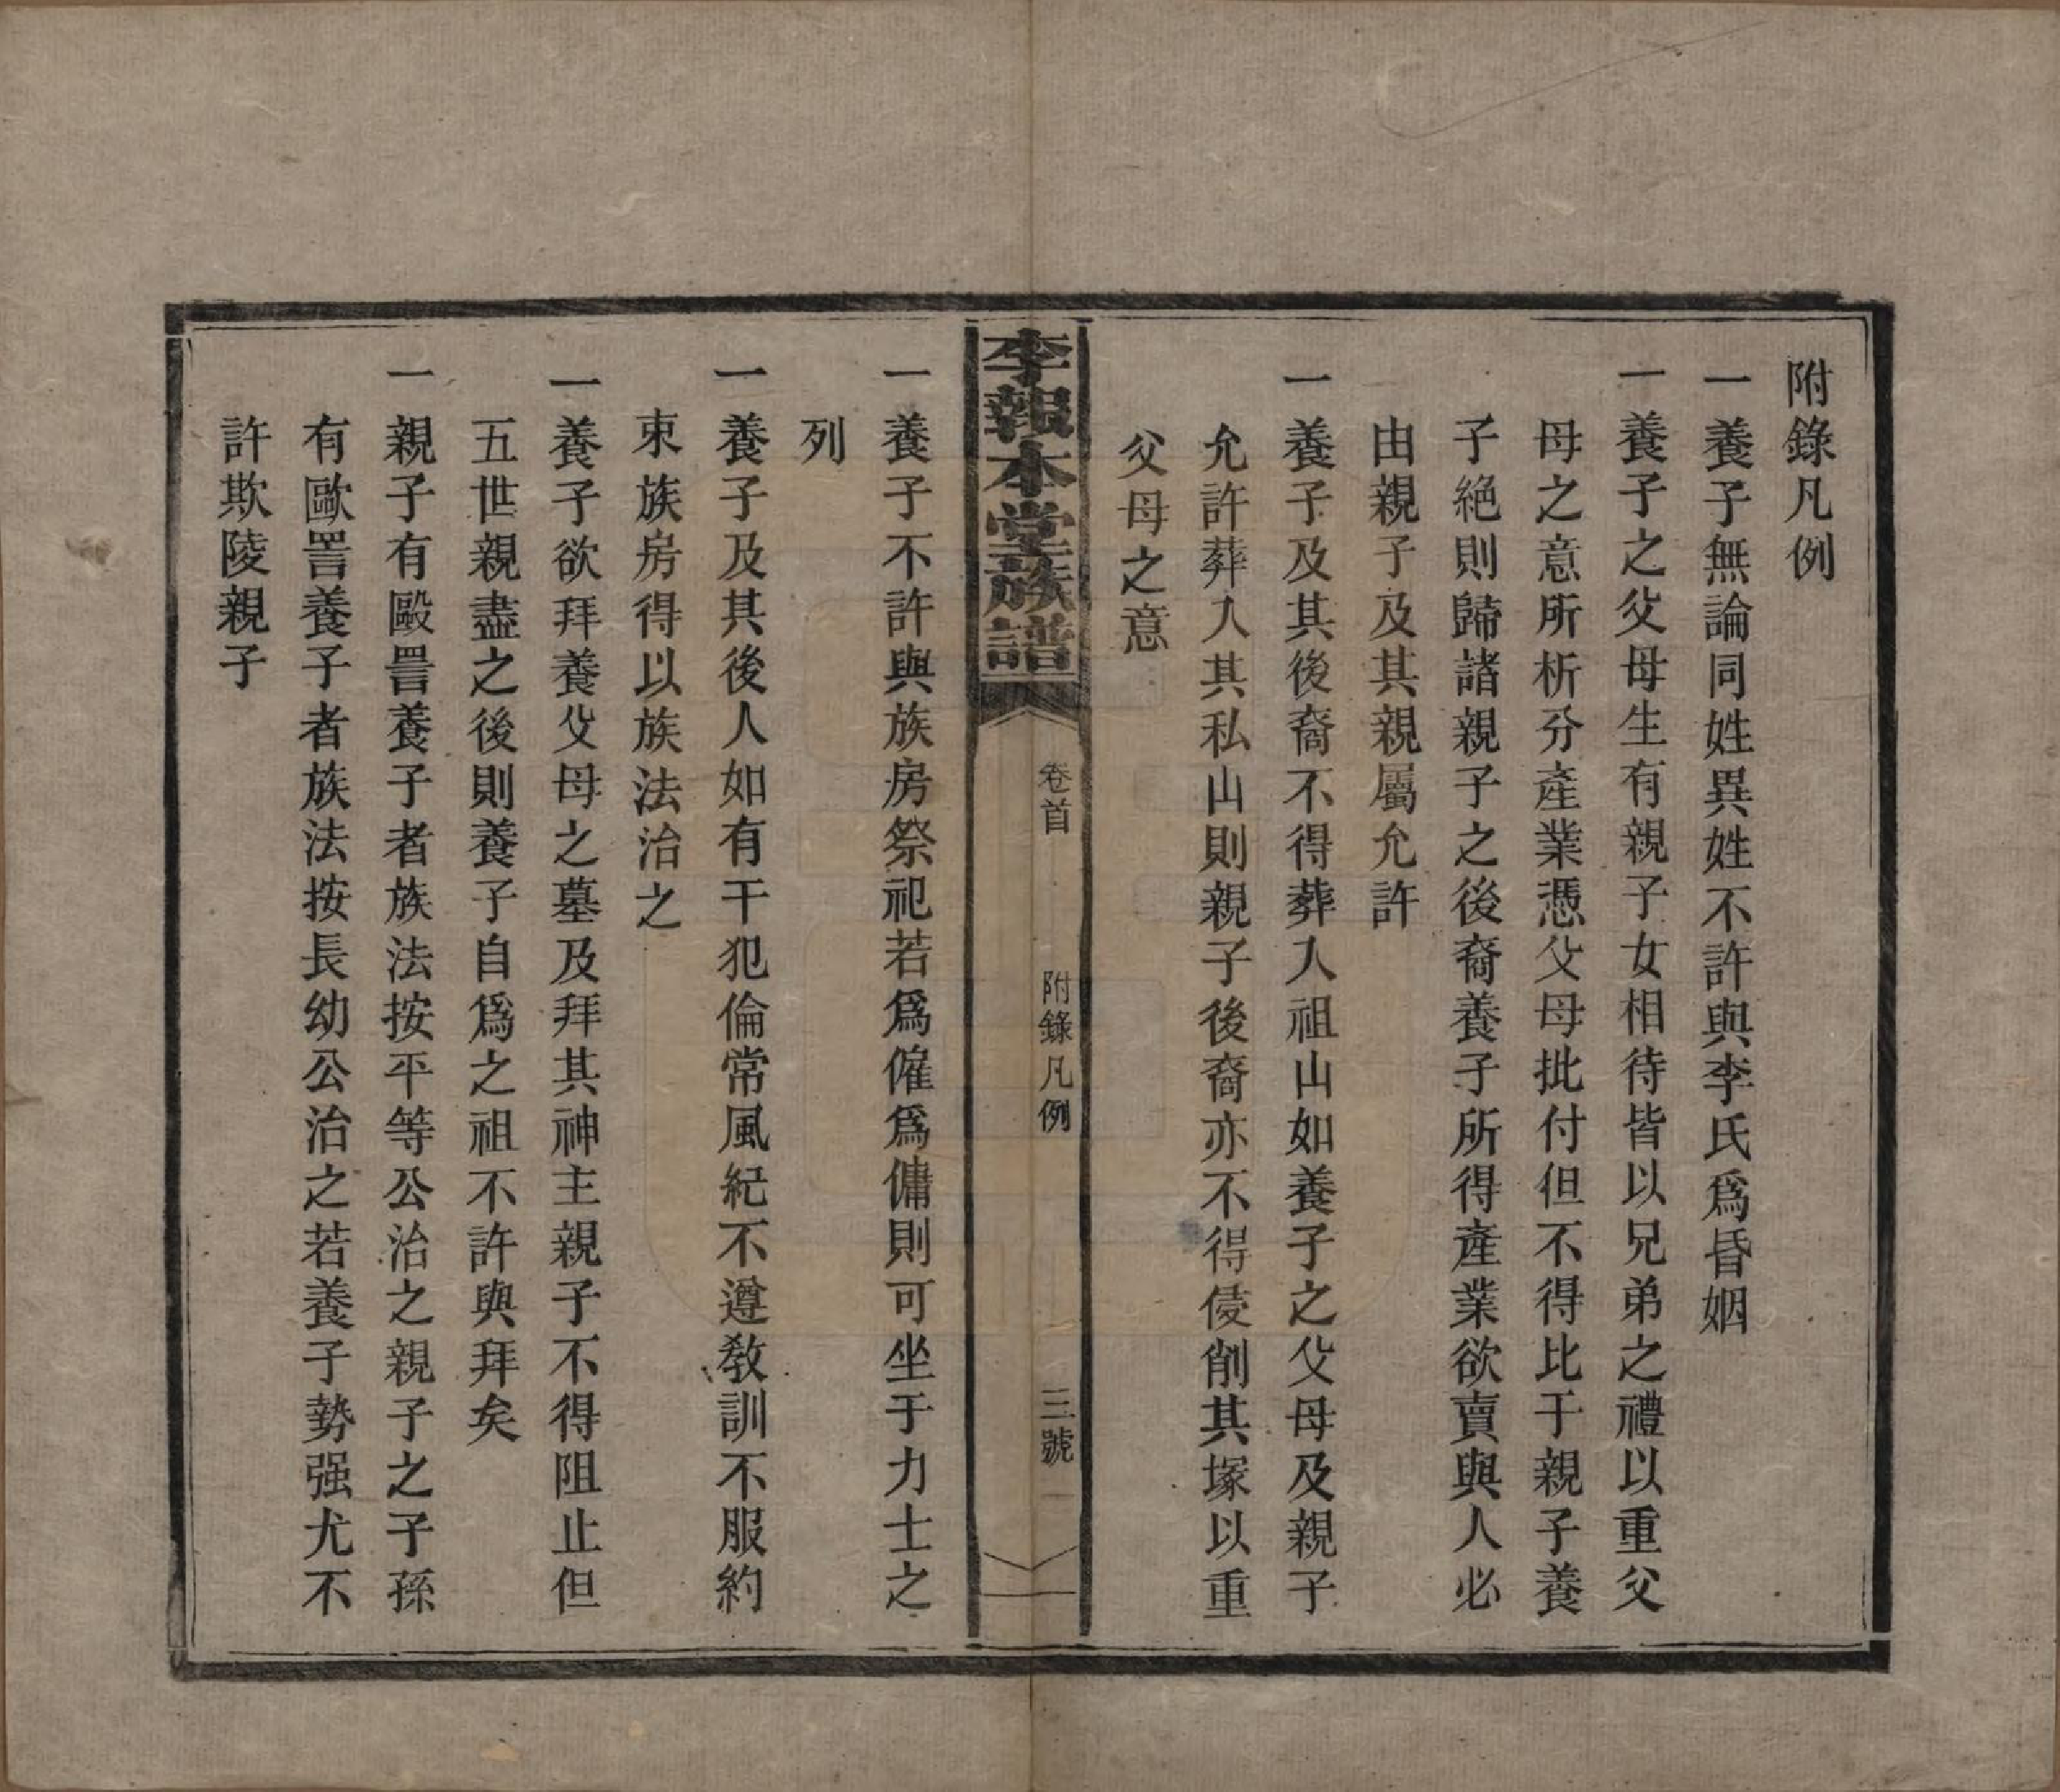 附錄凡例
一養子無論同姓異姓不許與李氏爲昏姻
一養子之父母生有親子女相待皆以兄弟之禮以重父
母之意所析分產業憑父母批付但不得比于親子養
子絕則歸諸親子之後裔養子所得產業欲賣與人必
由親子及其親屬允許
一養子及其後裔不得葬入祖山如養子之父母及親子
允許葬入其私山則親子後裔亦不得侵削其塚以重
父母之意
李報本堂族譜
卷首
附錄凡例
三號
一養子不許與族房祭祀若爲僱爲傭則可坐于力士之
列
一養子及其後人如有干犯倫常風紀不遵教訓不服約
束族房得以族法治之
一養子欲拜養父母之墓及拜其神主親子不得阻止但
五世親盡之後則養子自爲之祖不許與拜矣
一親子有毆詈養子者族法按平等公治之親子之子孫
有歐詈養子者族法按長幼公治之若養子勢强尤不
許欺陵親子